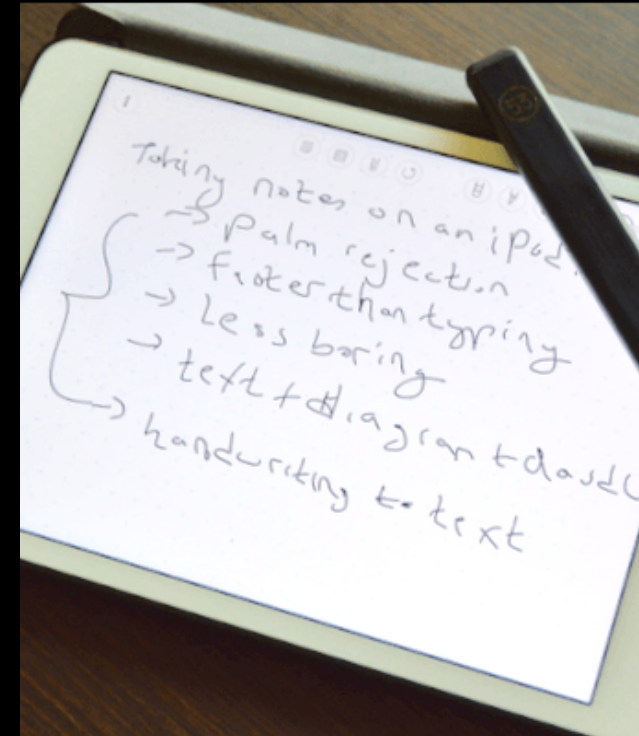 Taking notes on an iPad
-> Palm rejection
-> faster than typing
-> Less boring
-> text + diagram +
-> handwriting to text
53